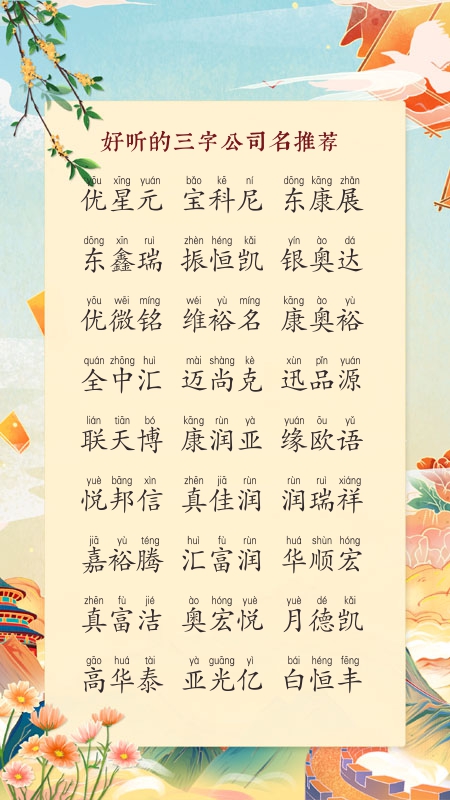 好听的三字公司名推荐
yōu xīng yuán bǎo kē ní dōng kāng zhǎn
优星元 宝科尼 东康展
dōng xīn ruì zhèn héng kǎi yín ào dá
东鑫瑞 振恒凯 银奥达
yōu wēi míng wéi yù míng kāng ào yù
优微铭 维裕名 康奥裕
quán zhōng huì mài shàng kè xùn pǐn yuán
全中汇 迈尚克 迅品源
lián tiān bó kāng rùn yà yuán ōu yǔ
联天博 康润亚 缘欧语
yuè bāng xìn zhēn jiā rùn rùn ruì xiáng
悦邦信 真佳润 润瑞祥
jiā yù téng huì fù rùn huá shùn hóng
嘉裕腾 汇富润 华顺宏
zhēn fù jié ào hóng yuè yuè dé kǎi
真富洁 奥宏悦 月德凯
gāo huá tài yà guāng yì bái héng fēng
高华泰 亚光亿 白恒丰